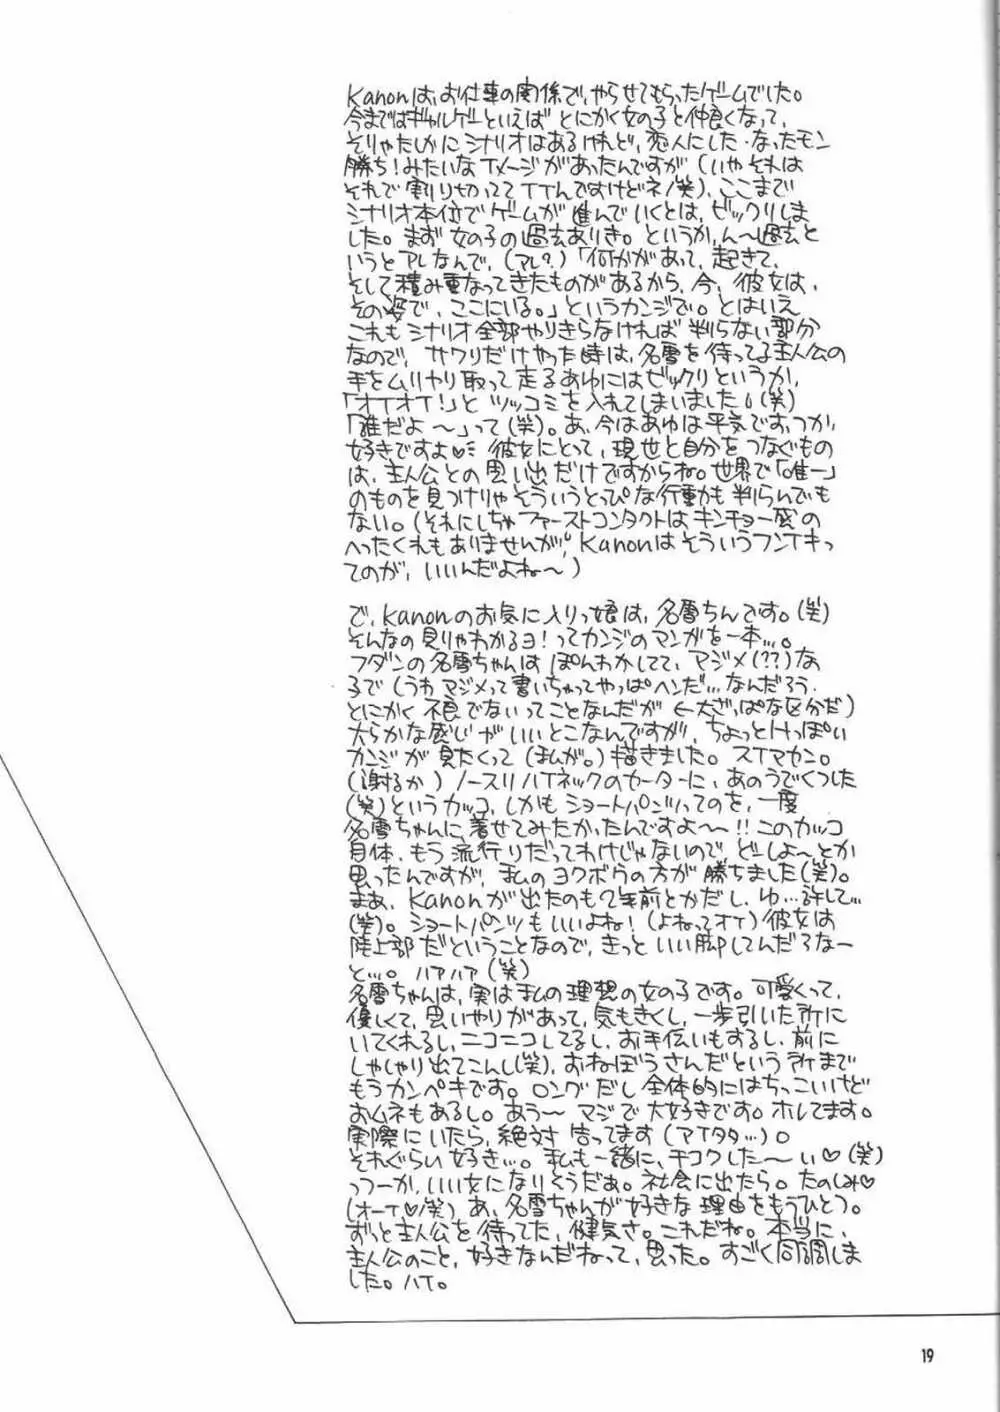 Kanonは、お仕事の関係で、やらせてもらったゲームでした。
今まではギャルゲーといえば とにかく女の子と仲良くなって、
そりゃたしかに シナリオはあるけれど、恋人にした・なったモン
勝ち！みたいなイメージがあったんですが（いやそれは
それで割り切っててイイんですけどネ/笑）、ここまで
シナリオ本位でゲームが進んでいくとは、ビックリしま
した。まず女の子の過去ありき。というか、ん〜過去と
いうとアレなんで、（アレ?）「何かがあって、起きて、
そして積み重なってきたものがあるから、今、彼女は、
その姿で、ここにいる。」というカンジで。とはいえ
これもシナリオ全部やりきらなければ 判らない部分
なので、サワリだけやった時は、名雪を待ってる主人公の
手をムリヤリ取って走るあゆにはビックリというか、
「オイオイ！」と ツッコミを入れてしまいました。（笑）
「誰だよ〜」って（笑）。あ、今はあゆは平気です、つか、
好きですよ♡ 彼女にとって、現世と自分をつなぐもの
は、主人公との思い出だけですからね。世界で「唯一」
のものを見つけりゃそういうとっぴな行動も判らんでも
ない。（それにしちゃファーストコンタクトはキンチョー感の
へったくれもありませんが、Kanonはそういうフンイキっ
てのが、いいんだよね〜）

で、Kanonのお気に入りっ娘は、名雪ちんです。（笑）
そんなの見りゃわかるヨ！ってカンジのマンガを一本…。
フダンの名雪ちゃんは ぽんわかしてて、マジメ（??）な
子で（うわ マジメって書いちゃってやっぱヘンだ…なんだろう、
とにかく 不良でないってことなんだが ←大ざっぱな区分だ）
大らかな感じがいいとこなんですが、ちょっとHっぽい
カンジが 見たくって（私が。）描きました。スイマセン。
（謝るか）ノースリハイネックのセーターに、あのうでくつした
（笑）というカッコ、しかもショートパンツってのを、一度
名雪ちゃんに、着せてみたかったんですよ〜〜!! このカッコ
自体、もう流行りだってわけじゃないので どーしよ〜とか
思ったんですが、私のヨクボウの方が勝ちました（笑）。
まあ、Kanonが出たのも2年前とかだし、ゆ…許して…
（笑）。ショートパンツもいいよね！（よねってオイ）彼女は
陸上部だということなので、きっといい脚してんだろなー
と…。ハァハァ（笑）
名雪ちゃんは、実は私の理想の女の子です。可愛くって、
優しくて、思いやりがあって、気もきくし、一歩引いた所に
いてくれるし、ニコニコしてるし、お手伝いもするし、前に
しゃしゃり出てこんし（笑）、おねぼうさんだという所まで
もうカンペキです。ロングだし 全体的にはちっこいけど
おムネもあるし。あう〜 マジで大好きです。ホレてます。
実際にいたら、絶対 告ってます（アイタタ…）。
それぐらい好き…。私も一緒に、チコクした〜い♡（笑）
っつーか、いい女になりそうだぁ。社会に出たら。たのしみ♡
（オーイ♡/笑）あ、名雪ちゃんが好きな理由をもうひとつ。
ずっと主人公を待ってた、健気さ。これだね。本当に、
主人公のこと、好きなんだねって、思った。すごく同調しま
した。ハイ。
19